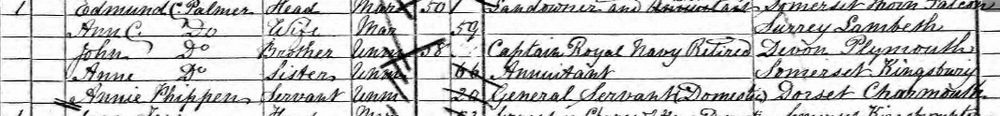 1 Edmund C Palmer Head Mar 50 Landowner and Annuitant Somerset Thorn Falcon
Ann C. Do Wife Mar 59 Surrey Lambeth
John Do Brother Unm 58 Captain Royal Navy Retired Devon Plymouth
Anne Do Sister Unm 66 Annuitant Somerset Kingsbury
Annie Phippen Servant Unm 20 General Servant (Domestic) Dorset Charmouth
1 Head